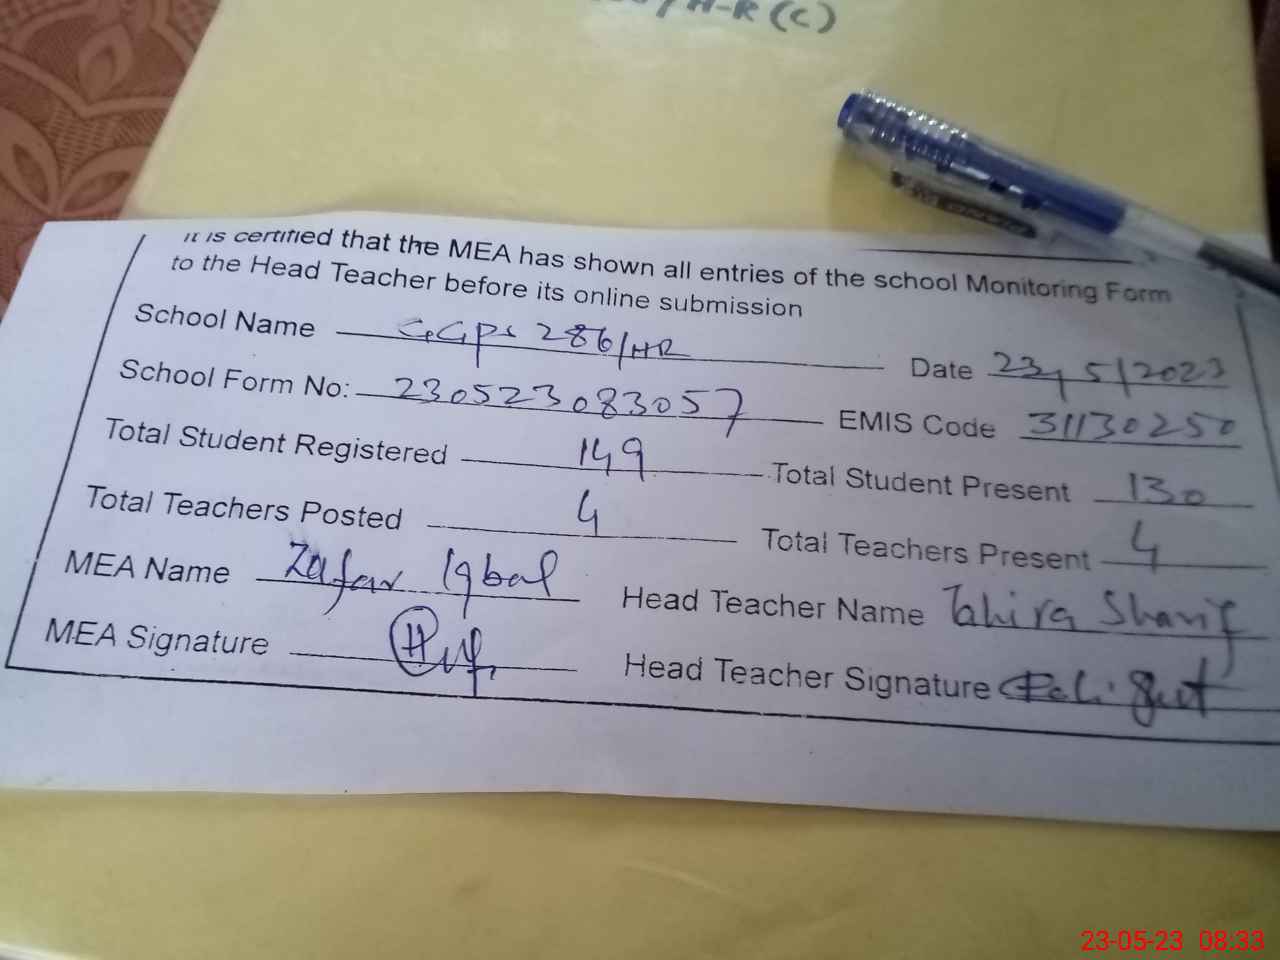 H-R (C)
It is certified that the MEA has shown all entries of the school Monitoring Form
to the Head Teacher before its online submission
School Name GGPS 286/HR Date 23/5/2023
School Form No: 230523083057 EMIS Code 31130250
Total Student Registered 149 Total Student Present 130
Total Teachers Posted 4 Total Teachers Present 4
MEA Name Zafar Iqbal Head Teacher Name Tahira Sharif
MEA Signature Head Teacher Signature
23-05-23 08:33